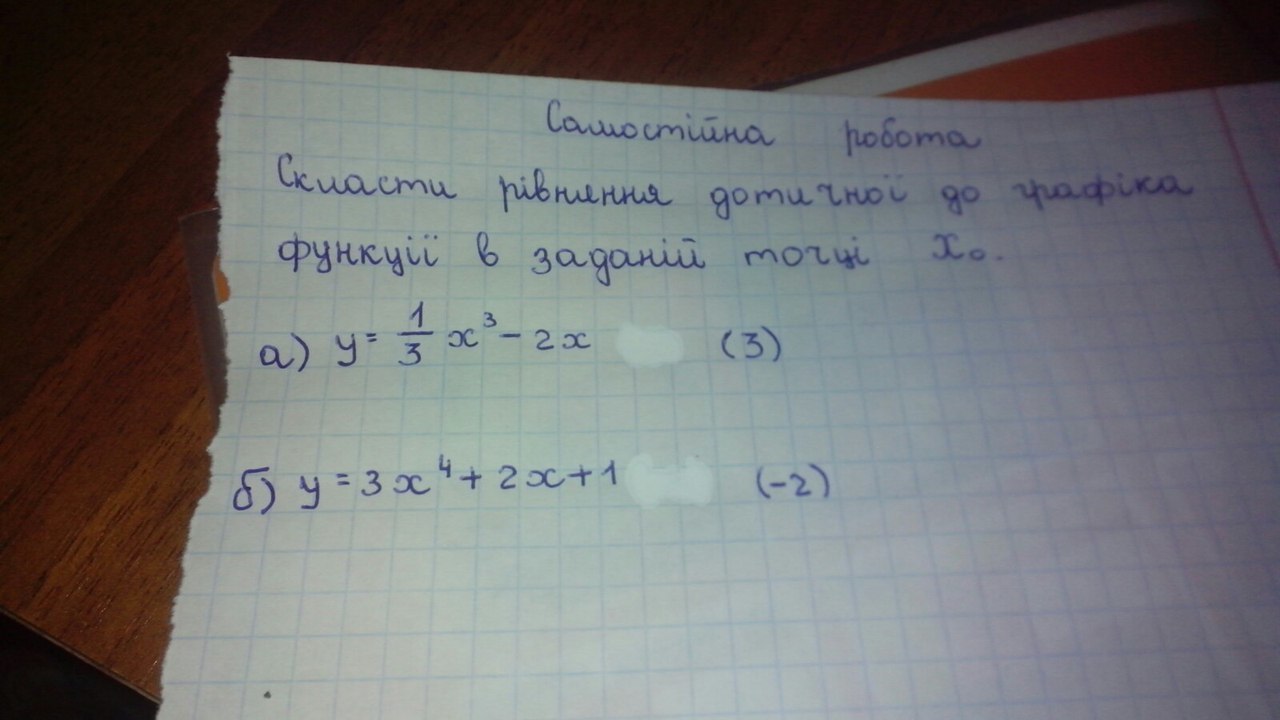 Самостійна робота
Скласти рівняння дотичної до графіка
функції в заданій точці x₀.
а) y = 1/3 x³ - 2x (3)
б) y = 3x⁴ + 2x + 1 (-2)